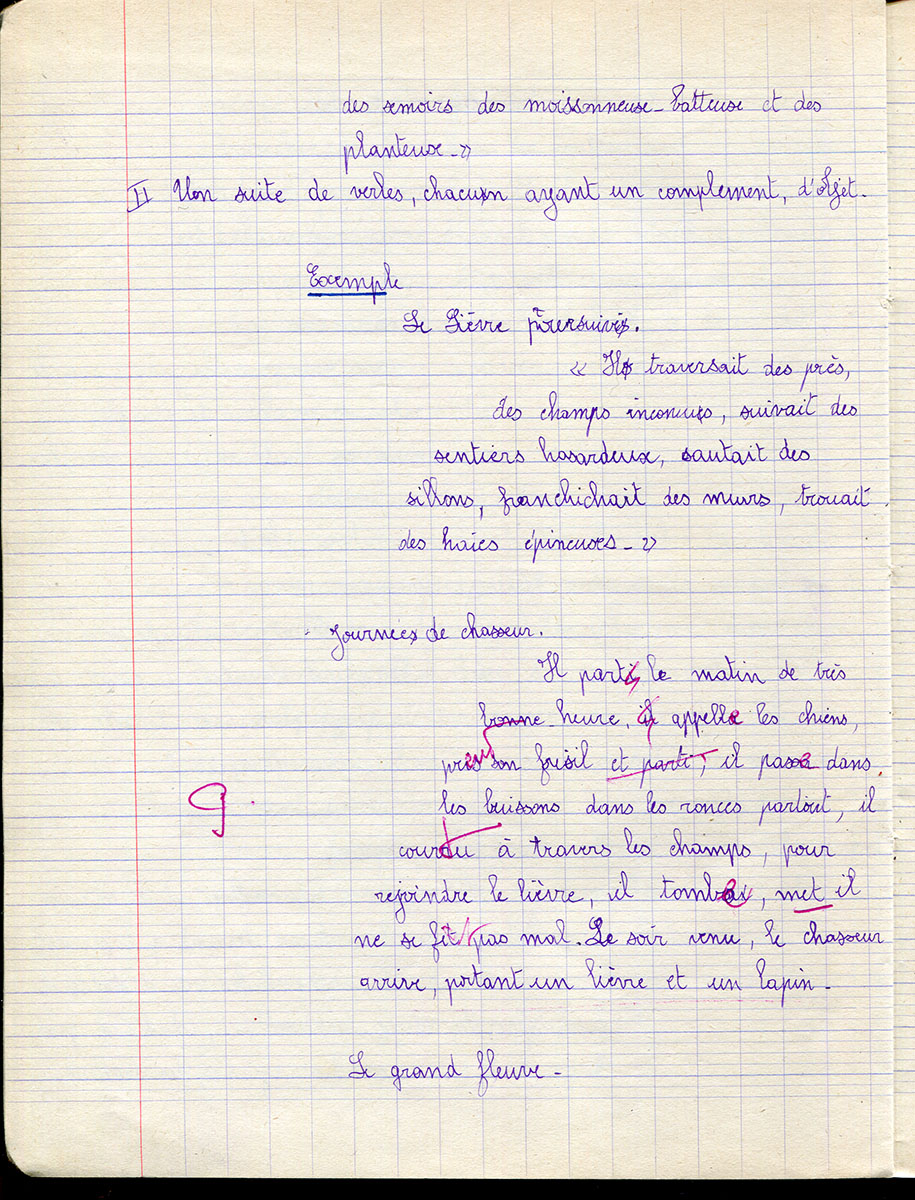 des semoirs des moissonneuse-batteuse et des
planteuse_»
II Un suite de verbes, chacun ayant un complement, d'Objet.
Exemple
Le Lièvre poursuivi.
« Il traversait des près,
des champs inconus, suivait des
sentiers hasardeux, sautait des
sillons, franchichait des murs, trouait
des haies épineuses_»
Journées de chasseur.
Il part le matin de très
bonne heure, il appelle les chiens,
prend son fusil et parti, il passe dans
les buissons dans les ronces partout, il
9.
court à travers les champs, pour
rejoindre le lièvre, il tombe, met il
ne se fit pas mal. Le soir venu, le chasseur
arrive, portant un lièvre et un lapin_
Le grand fleuve_